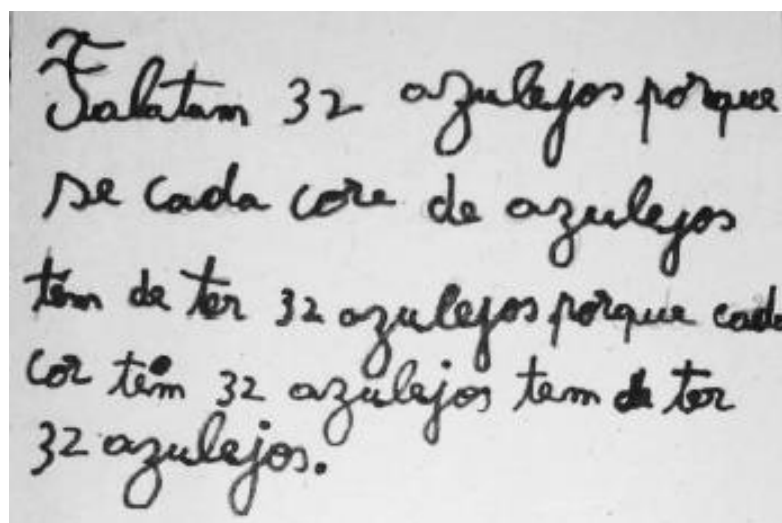 Falatam 32 azulejos porque
se cada core de azulejos
têm de ter 32 azulejos porque cada
cor têm 32 azulejos tem de ter
32 azulejos.